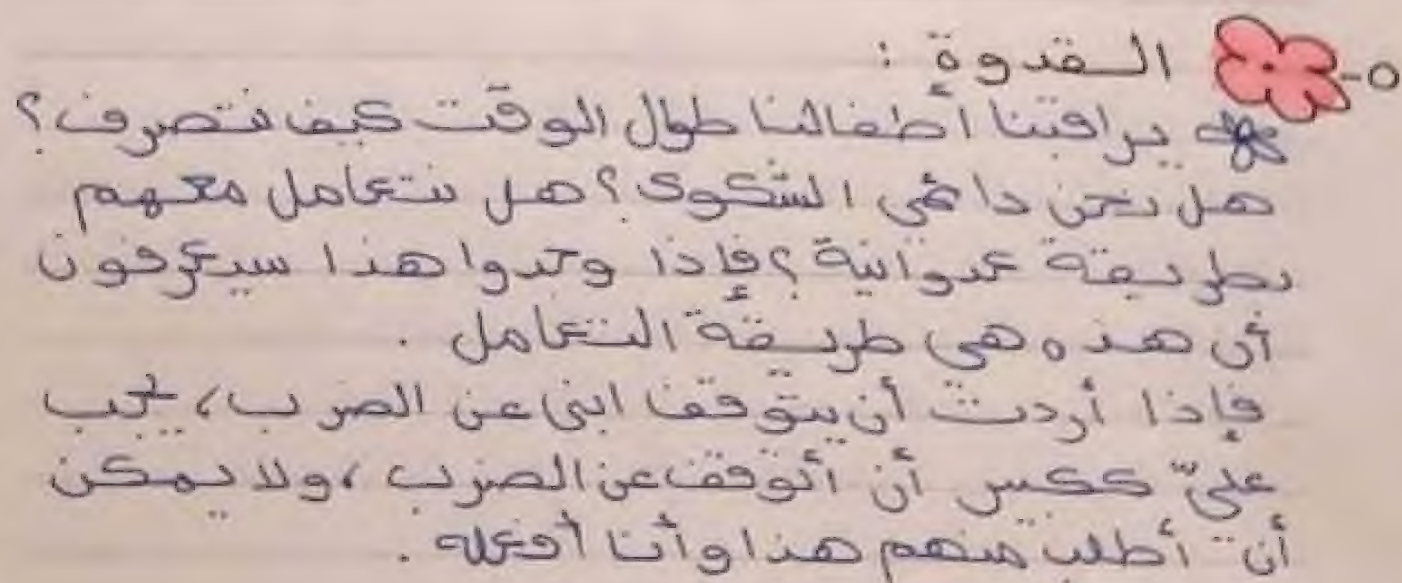 ٥- القدوة :
يراقبنا أطفالنا طوال الوقت كيف نتصرف؟
هل نحن دائمى الشكوى؟ هل نتعامل معهم
بطريقة عدوانية؟ فإذا وجدوا هذا سيعرفون
أن هذه هى طريقة التعامل .
فإذا أردت أن يتوقف ابنى عن الضرب، يجب
علىّ ككبير أن أتوقف عن الضرب، ولا يمكن
أن أطلب منهم هذا وأنا أفعله .